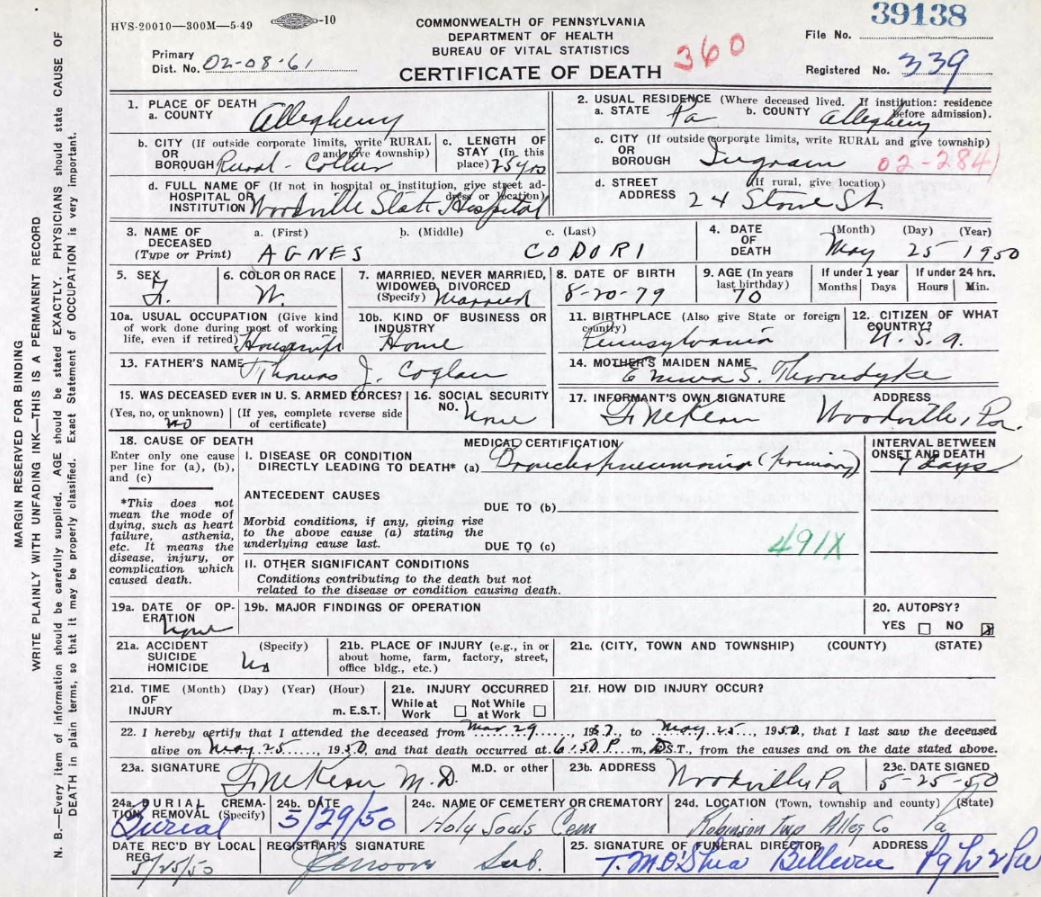 HVS-20010—300M—5-49 -10
COMMONWEALTH OF PENNSYLVANIA
DEPARTMENT OF HEALTH
BUREAU OF VITAL STATISTICS
CERTIFICATE OF DEATH
360
39138
File No.
Primary Dist. No. 02-08-61
Registered No. 339
MARGIN RESERVED FOR BINDING
WRITE PLAINLY WITH UNFADING INK—THIS IS A PERMANENT RECORD
N. B.—Every item of information should be carefully supplied. AGE should be stated EXACTLY. PHYSICIANS should state CAUSE OF
DEATH in plain terms, so that it may be properly classified. Exact Statement of OCCUPATION is very important.
1. PLACE OF DEATH
a. COUNTY Allegheny
b. CITY (If outside corporate limits, write RURAL
OR and give township)
BOROUGH Rural - Collier
c. LENGTH OF
STAY (In this
place) 25 yrs
d. FULL NAME OF (If not in hospital or institution, give street ad-
HOSPITAL OR dress or location)
INSTITUTION Woodville State Hospital
2. USUAL RESIDENCE (Where deceased lived. If institution: residence
before admission).
a. STATE Pa b. COUNTY Allegheny
c. CITY (If outside corporate limits, write RURAL and give township)
OR
BOROUGH Ingram 02-284
d. STREET (If rural, give location)
ADDRESS 24 Stowe St.
3. NAME OF a. (First) b. (Middle) c. (Last)
DECEASED
(Type or Print) AGNES CODORI
4. DATE (Month) (Day) (Year)
OF
DEATH May 25 1950
5. SEX
F.
6. COLOR OR RACE
W.
7. MARRIED, NEVER MARRIED,
WIDOWED, DIVORCED
(Specify) Married
8. DATE OF BIRTH
8-20-79
9. AGE (In years
last birthday)
70
If under 1 year
Months Days
If under 24 hrs.
Hours Min.
10a. USUAL OCCUPATION (Give kind
of work done during most of working
life, even if retired) Housewife
10b. KIND OF BUSINESS OR
INDUSTRY
Home
11. BIRTHPLACE (Also give State or foreign
country)
Pennsylvania
12. CITIZEN OF WHAT
COUNTRY?
U.S.A.
13. FATHER'S NAME
Thomas J. Coglan
14. MOTHER'S MAIDEN NAME
Emma S. Thorndyke
15. WAS DECEASED EVER IN U. S. ARMED FORCES?
(Yes, no, or unknown) (If yes, complete reverse side
of certificate)
no
16. SOCIAL SECURITY
NO. None
17. INFORMANT'S OWN SIGNATURE ADDRESS
Woodville, Pa.
18. CAUSE OF DEATH
Enter only one cause
per line for (a), (b),
and (c)
*This does not
mean the mode of
dying, such as heart
failure, asthenia,
etc. It means the
disease, injury, or
complication which
caused death.
MEDICAL CERTIFICATION
I. DISEASE OR CONDITION
DIRECTLY LEADING TO DEATH* (a) Bronchopneumonia (primary)
INTERVAL BETWEEN
ONSET AND DEATH
7 days
ANTECEDENT CAUSES
DUE TO (b)
Morbid conditions, if any, giving rise
to the above cause (a) stating the
underlying cause last.
DUE TO (c) 491X
II. OTHER SIGNIFICANT CONDITIONS
Conditions contributing to the death but not
related to the disease or condition causing death.
19a. DATE OF OP-
ERATION
None
19b. MAJOR FINDINGS OF OPERATION
20. AUTOPSY?
YES NO X
21a. ACCIDENT (Specify)
SUICIDE
HOMICIDE No
21b. PLACE OF INJURY (e.g., in or
about home, farm, factory, street,
office bldg., etc.)
21c. (CITY, TOWN AND TOWNSHIP) (COUNTY) (STATE)
21d. TIME (Month) (Day) (Year) (Hour)
OF
INJURY m. E.S.T.
21e. INJURY OCCURRED
While at Work Not While at Work
21f. HOW DID INJURY OCCUR?
22. I hereby certify that I attended the deceased from Mar. 29, 1937, to May 25, 1950, that I last saw the deceased
alive on May 25, 1950, and that death occurred at 6:50 P. m, D.S.T., from the causes and on the date stated above.
23a. SIGNATURE M.D. or other
M.D.
23b. ADDRESS
Woodville Pa
23c. DATE SIGNED
5-25-50
24a. BURIAL CREMA-
TION, REMOVAL (Specify)
Burial
24b. DATE
5/29/50
24c. NAME OF CEMETERY OR CREMATORY
Holy Souls Cem
24d. LOCATION (Town, township and county) (State)
Robinson Twp Alleg Co Pa
DATE REC'D BY LOCAL
REG.
5/25/50
REGISTRAR'S SIGNATURE
Sub.
25. SIGNATURE OF FUNERAL DIRECTOR ADDRESS
T. M. O'Shea Bellevue Pgh Pa